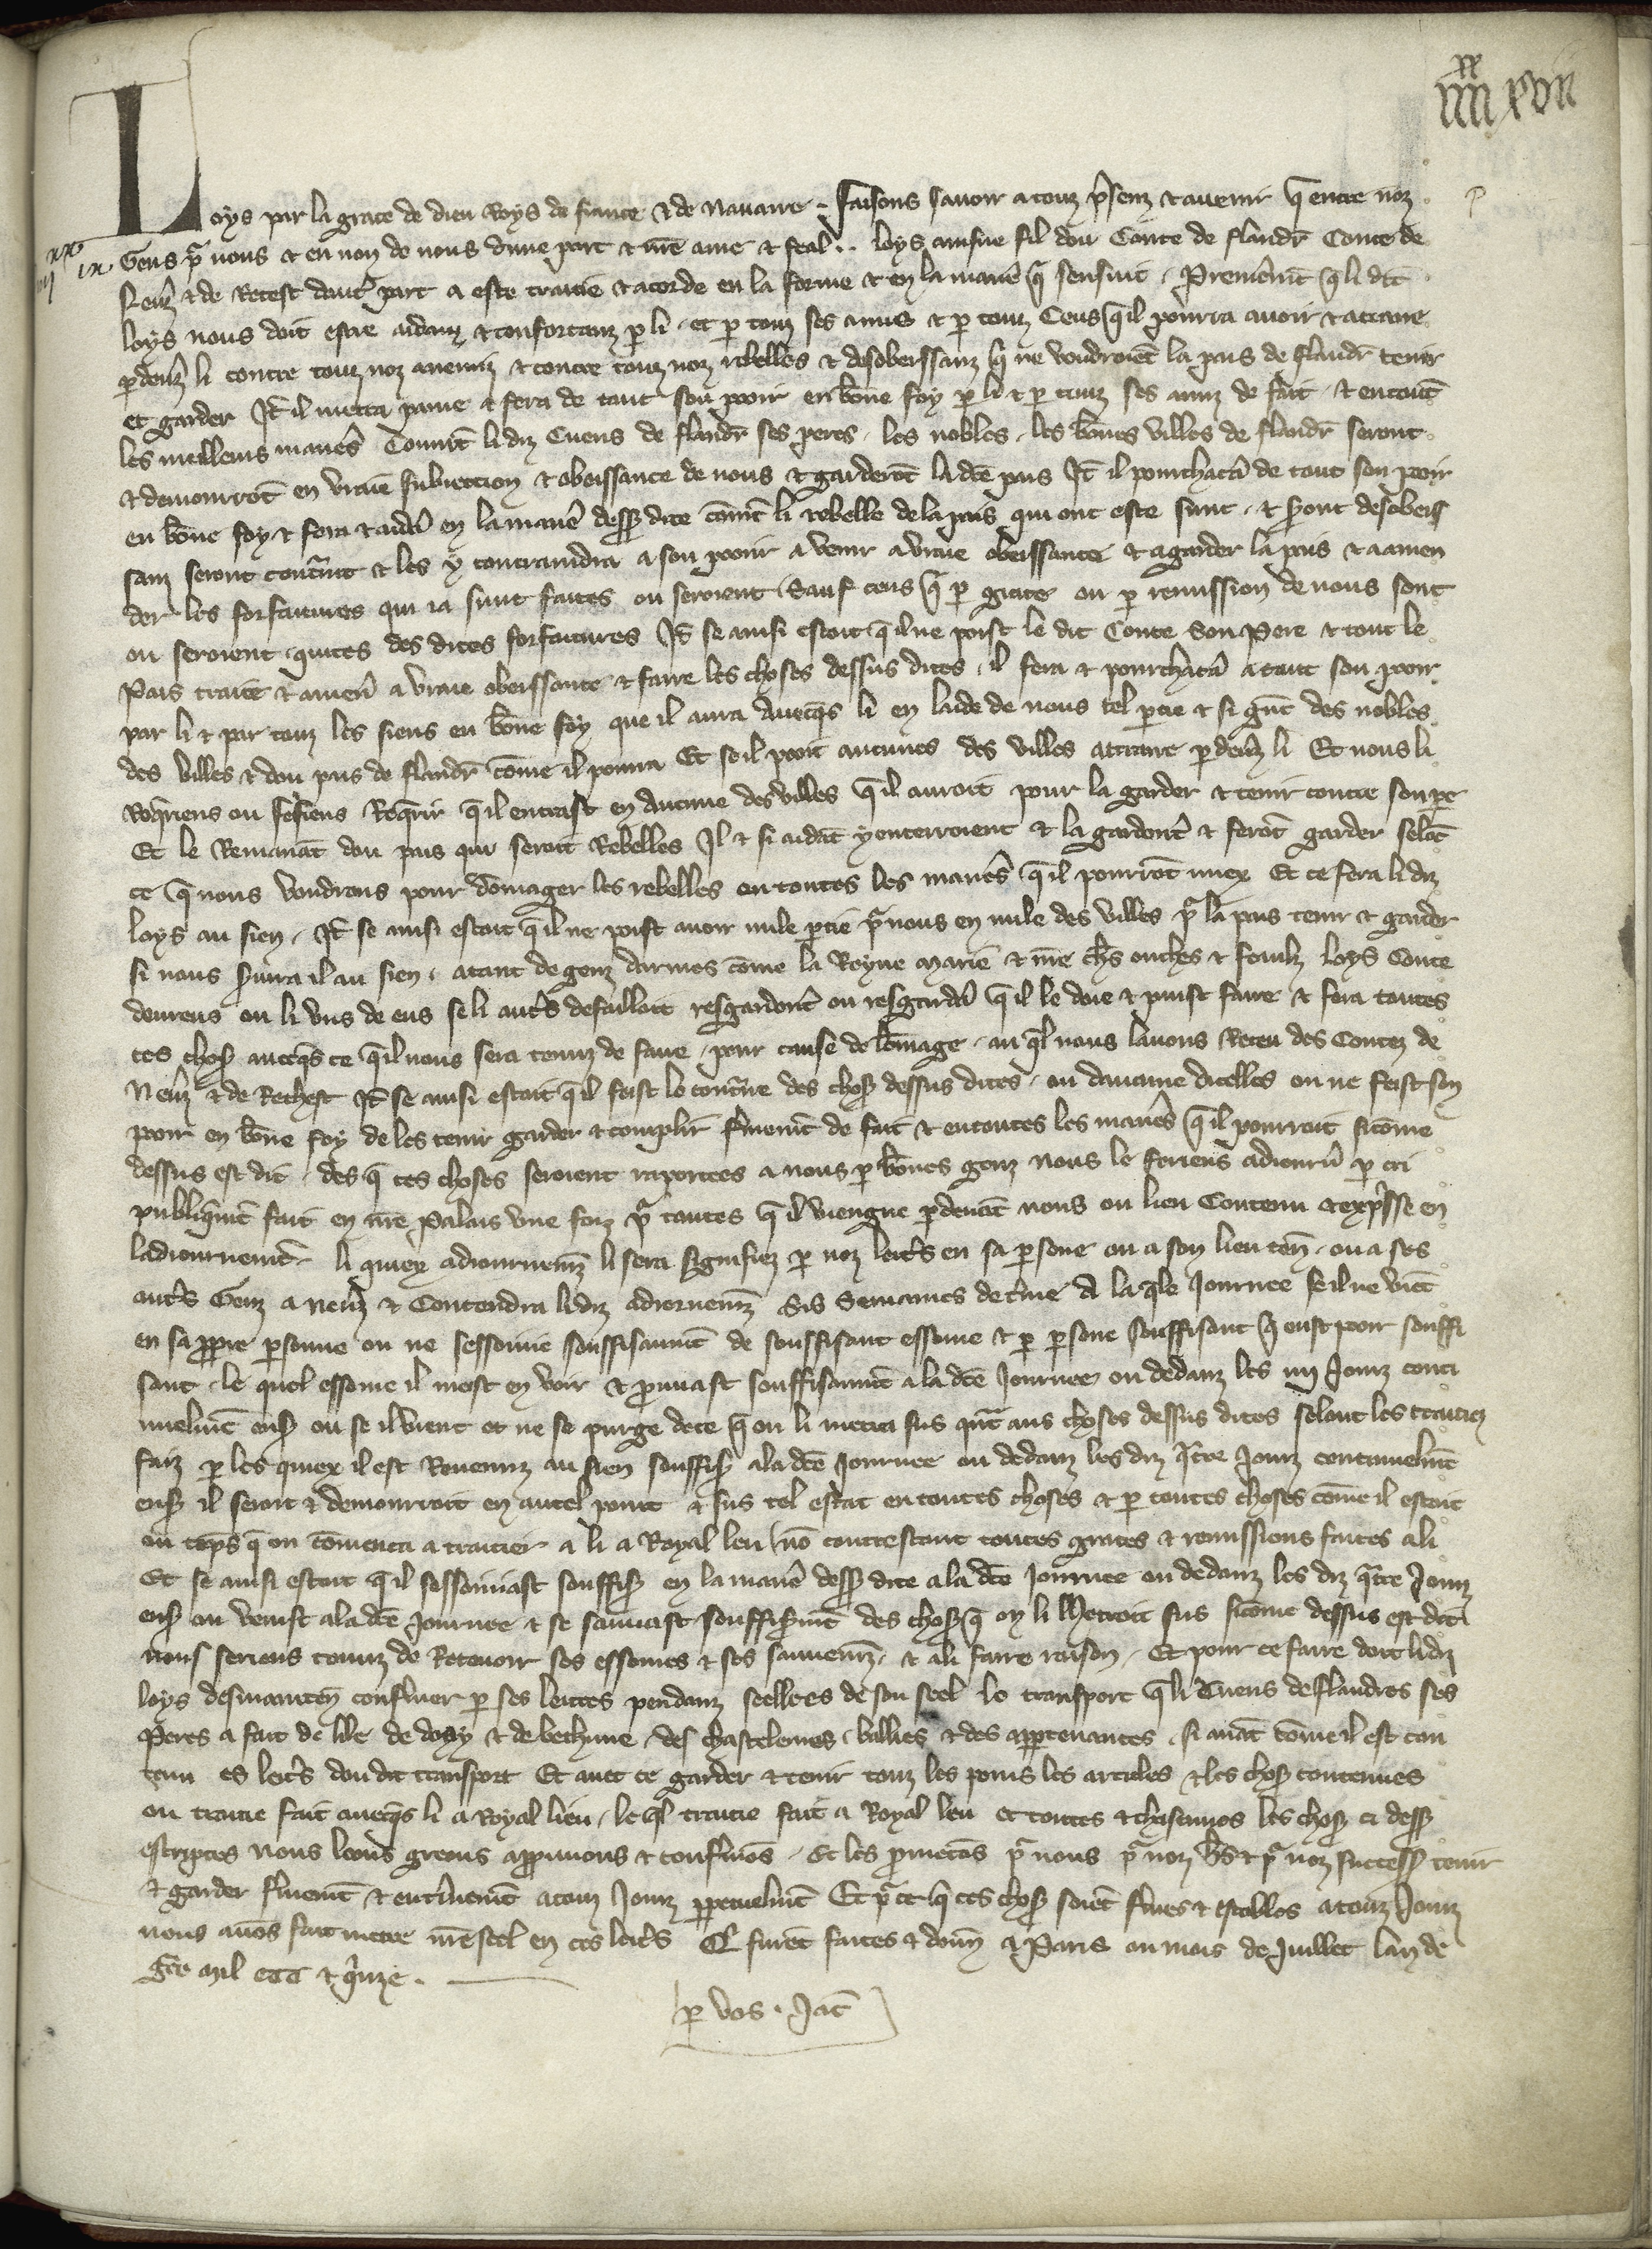 XX
IIII XVII
Loys par la grace de dieu Roys de france & de Nauarre . Faisons sauoir a touz p̄senz et auenir q̄ entre noz
XX
IIII IX
Gens pͬ nous et en non de nous dune part et nr̄e ame & feal .. loys ainsne fil dou Conte de flandr̄ Conte de
Neuͬs & de Retest dautͬ part a este traitie & acorde en la forme et en la manīe q̄ sensuit . Premierem̄t q̄ li dit
loys nous doit estre aidanz & confortanz ꝑ li . et ꝑ touz ses amis & ꝑ touz Ceus q̄ il pourra auoir & attraire
ꝑ deuͬs li contre touz noz anemiz & contre touz noz rebelles & desobeissanz q̄ ne voudroiēt la pais de flandr̄ tenir
et garder It̄ il mettra paine & fera de tout son pooir en bōne foy ꝑ li & ꝑ touz ses amiz de fait . & en toutes
les meilleurs maniēs Coument li diz Cuens de flandr̄ ses peres . les nobles . les bōnes villes de flandr̄ seront
& demourrōt en vraie subiection & obeissance de nous & garderōt la dc̄e pais It̄ il pourchacēa de tout son pooir
en bōne foy & fera & aidēa en la maniē dess⁹ dite cōment li rebelle de la pais qui ont este sunt . & s̄ont desobeis
sanz seront contraint & les y contraindra a son pooir a venir a vraie obeissance & a garder la pais & a amen
der les forfaitures qui ia sunt faites ou seroient Sauf ceus q̄ ꝑ grace ou ꝑ remission de nous sont
ou seroient quites des dites forfaitures It̄ se ainsi estoit q̄ il ne poist le dit Conte son Pere & tout le
Pais traire & amenēr a vraie obeissance & faire les choses dessus dites . il fera & pourchacēa a tout son pooir
par li & par touz les siens en bōne foy que il aura auecq̄s li en laide de nous tel ꝑtie & si gūt des nobles
des villes & dou pais de flandr̄ cōme il pourra Et se il pooit aucunes des villes attraire ꝑ deuͬs li Et nous li
Req̄riens ou feisiens Req̄rir q̄ il entrast en Aucune des villes q̄ il auroit pour la garder & tenir contre son pe
Et le Remanāt dou pais qui seroit Rebelles Il & si aidāt y enterroient & la garderōt & ferōt garder selōc
ce q̄ nous voudrons pour dōmager les rebelles en toutes les maniēs q̄ il pourrōt miex Et ce fera li diz
loys au sien . It̄ se ainsi estoit q̄ il ne poist auoir nule ꝑtie pͬ nous en nule des villes pͬ la pais tenir & garder
si nous s̄uira il au sien . a tant de genz darmes cōme la Royne Marie & nr̄e ch̄s oncles & feaulz loys Conte
deureus ou li vns de eus se li autͬs defailloit resgarderōt ou resgardēa q̄ il le doie & puist faire & fera toutes
ces chos⁹ auecq̄s ce q̄ il nous sera tenuz de faire . pour cause de lōmage . au q̄l nous lauons Receu des Contez de
Neuͬs & de Rethest It̄ se ainsi estoit q̄ il feist le contͬire des chos⁹ dessus dites . ou daucune dicelles ou ne feist son
pooir en bōne foy de les tenir garder & complir fermem̄t de fait & en toutes les maniēs q̄ il pourroit sicōme
dessus est dit . des q̄ ces choses seroient raportees a nous ꝑ bōnes genz nous le feriens adiourn̄ ꝑ cri
publiq̄m̄t fait en nr̄e Palais vne foiz pͬ toutes q̄ il viengne ꝑ deuāt nous ou lieu Contenu & exp̄sse en
ladiournem̄t . li quiex adiournem̄z li sera signifiez ꝑ noz lettͬs en sa ꝑsone ou a son lieu ten̄ . ou a ses
autͬs Genz a Neuͬs & Contendra li diz adiornem̄z Sis Semaines de tͬme A la q̄le Journee se il ne viēt
en sa ꝓpre ꝑsonne ou ne sessoinne souffisaum̄t de souffisant essoine & ꝑ ꝑsone souffisant q̄ eust pooir souffi
sant . le quel essoine il meist en voir & prouuast souffisaum̄t a la dc̄e Journee ou dedanz les IIII Jourz conti
nuelm̄t ens⁹ ou se il vient et ne se purge de ce q̄ on li mettra sus qūt aus choses dessus dites selont les traitiez
faiz ꝑ les quiex il est Reuenuz au sien souffis⁹ a la dc̄e Journee ou dedanz les diz q̄tre Jourz continuelm̄t
ens⁹ il seroit & demourroit en autel point & sus tel estat en toutes choses & ꝑ toutes choses cōme il estoit
ou tēps q̄ on cōmenca a traitier a li a Royal leu nō contrestant toutes graces & remissions faites a li
Et se ainsi estoit q̄ il sessoiniast souffis⁹ en la maniē dess⁹ dite a la dc̄e Journee ou dedanz les diz q̄tre Jourz
ens⁹ ou venist a la dc̄e Journee & se sauuast souffis⁹m̄t des chos⁹ q̄ on li Metroit sus sicōme dessus est dit
nous seriens tenuz de Receuoir ses essoines & ses sauuem̄z . & a li faire raison . Et pour ce faire doit li diz
loys desmainten̄ confermer ꝑ ses lettres pendanz seellees de son seel le transport q̄ li Cuens de flandres ses
Peres a fait de lile de doay & de bethune . des chasteleries . baillies & des appertenances . si auāt cōme il est con
tenu es lettͬs dou dit transport Et auec ce garder & tenir touz les poins les articles & les chos⁹ contenues
ou traitie fait auecq̄s li a Royal lieu . le q̄l traitie fait a Royal leu et toutes & chascunes les chos⁹ ci dess⁹
escriptes nous loons greons approuuons & confermōs . Et les prometōs pͬ nous pͬ noz h̄s & pͬ noz success⁹ tenir
& garder fermem̄t & entierem̄t a touz Jourz perpetuelm̄t Et pͬ ce q̄ ces chos⁹ soiēt fermes & estables a touz Jourz
nous auōs fait metre nr̄e seel en ces lettͬs Q̄ furēt faites & donn̄ a Paris ou mois de Juillet lan de
gͬce Mil CCC & q̄inze .
ꝑ vos . Jac̄